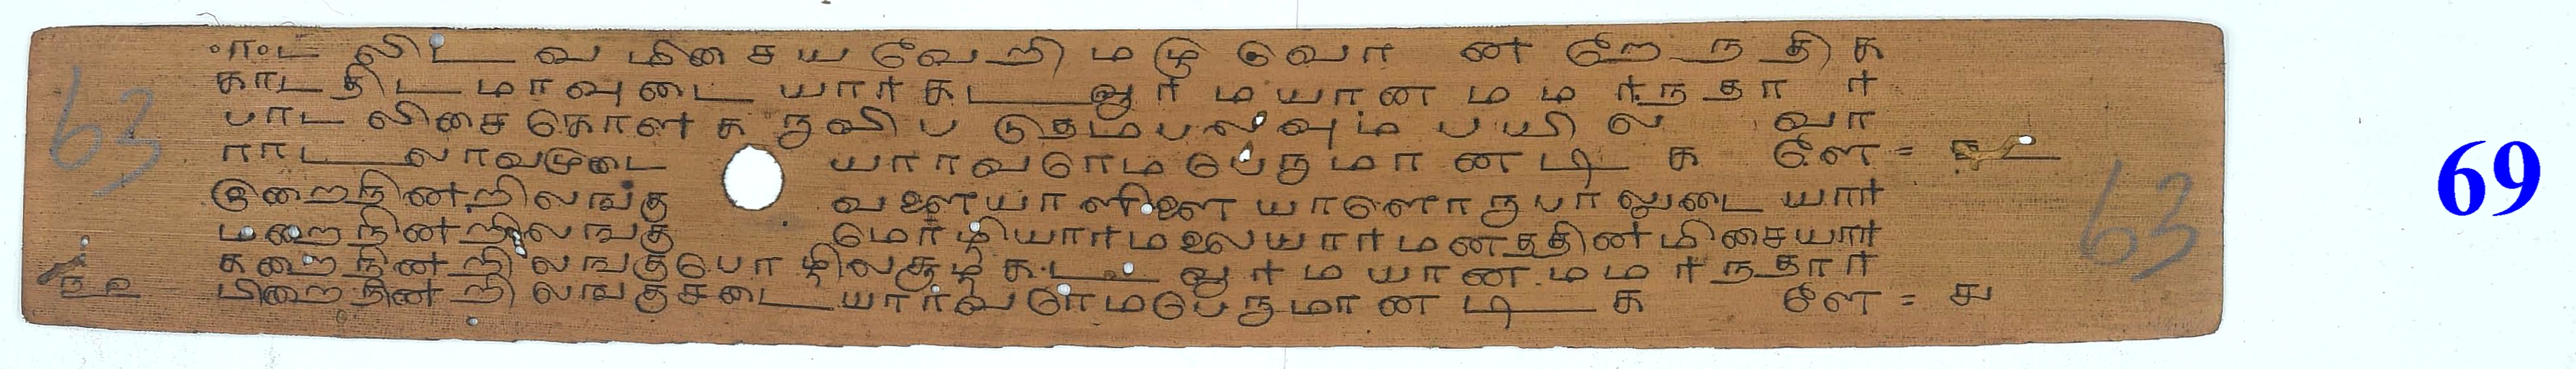 ாட லிட வ மிசை ய வேறி ம ழு வொ ன றே ந தி க
காட திட மாவுடை யார கட வூர மயான ம ம ரந தா ர
பாட லிசை கொள க ருவி ப டுதம பலவும ப யி ல வா
ராட லரவமுடை யாரவரெம பெரு மா ன டி க ளே =
இறைநினறிலஙகு வளையாளிளையாளொருபாலுடையார
மறைநினறிலஙகு மொழியாரமலையாரமனததினமிசையார
கறைநினறிலஙகுபொழிலசூழகட வூர மயான மம ரநதார
பிறைநினறிலஙகுசடையாரவரெமபெருமான டி க ளே = ௪
63
63
69